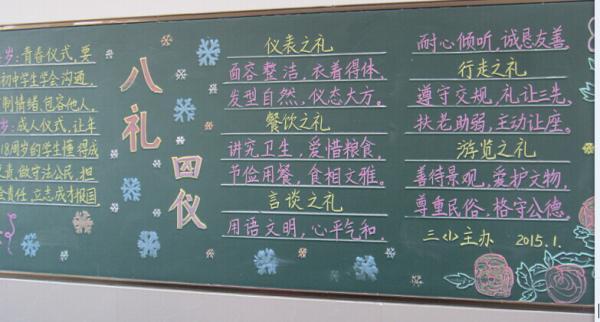 岁：青春仪式，要
初中学生学会沟通，
制情绪，包容他人。
岁：成人仪式，让年
18周岁的学生懂得成
责，做守法公民，担
责任，立志成才报国
八礼
四仪
仪表之礼
面容整洁，衣着得体，
发型自然，仪态大方。
餐饮之礼
讲究卫生，爱惜粮食，
节俭用餐，食相文雅。
言谈之礼
用语文明，心平气和，
耐心倾听，诚恳友善
行走之礼
遵守交规，礼让三先，
扶老助弱，主动让座。
游览之礼
善待景观，爱护文物，
尊重民俗，恪守公德。
三〈1〉主办 2015.1.